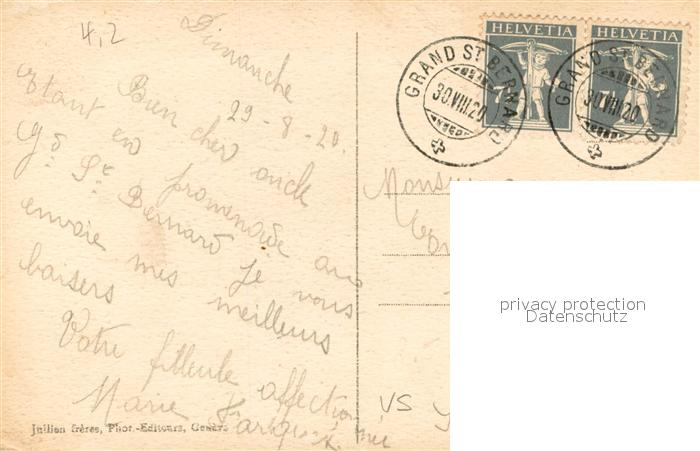 4,2
Dimanche
29-8-20.
Bien cher oncle
étant en promenade au
Gd St Bernard je vous
envoie mes meilleurs
baisers
Votre filleule affectionnée
Marie
Jullien frères, Phot.-Editeurs, Genève
HELVETIA
HELVETIA
GRAND ST BERNARD
30.VIII.20
GRAND ST BERNARD
30.VIII.20
privacy protection
Datenschutz
VS